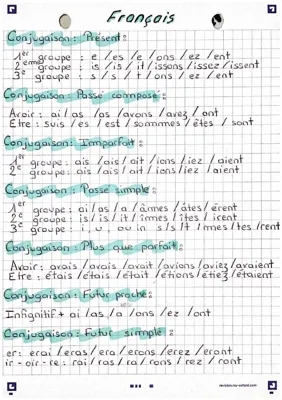 Français
Conjugaison : Présent :
1er groupe : e /es /e /ons /ez /ent
2e groupe : is /is /it /issons /issez /issent
3e groupe : s /s /t /ons /ez /ent
Conjugaison : Passé composé :
Avoir : ai /as /as /avons /avez / ont
Etre : suis /es /est /sommmes /êtes / sont
Conjugaison : Imparfait :
1er groupe : ais /ais /ait /ions /iez / aient
2e groupe : ais /ais /ait /ions /iez /aient
Conjugaison : Passé simple :
1er groupe : ai /as /a /âmes /âtes /èrent
2e groupe : is /is /it /îmes /îtes /irent
3e groupe : i, u, ou in s/s/t /mes /tes /rent
Conjugaison : Plus que parfait :
Avoir : avais /avais /avait /avions /aviez /avaient
Etre : étais /étais /était /étions /étiez /étaient
Conjugaison : Futur proche :
Infinitif + ai /as /a /ons /ez /ont
Conjugaison : Futur simple :
er : erai /eras /era /erons /erez /eront
ir - oir - re : rai /ras /ra /rons /rez / ront